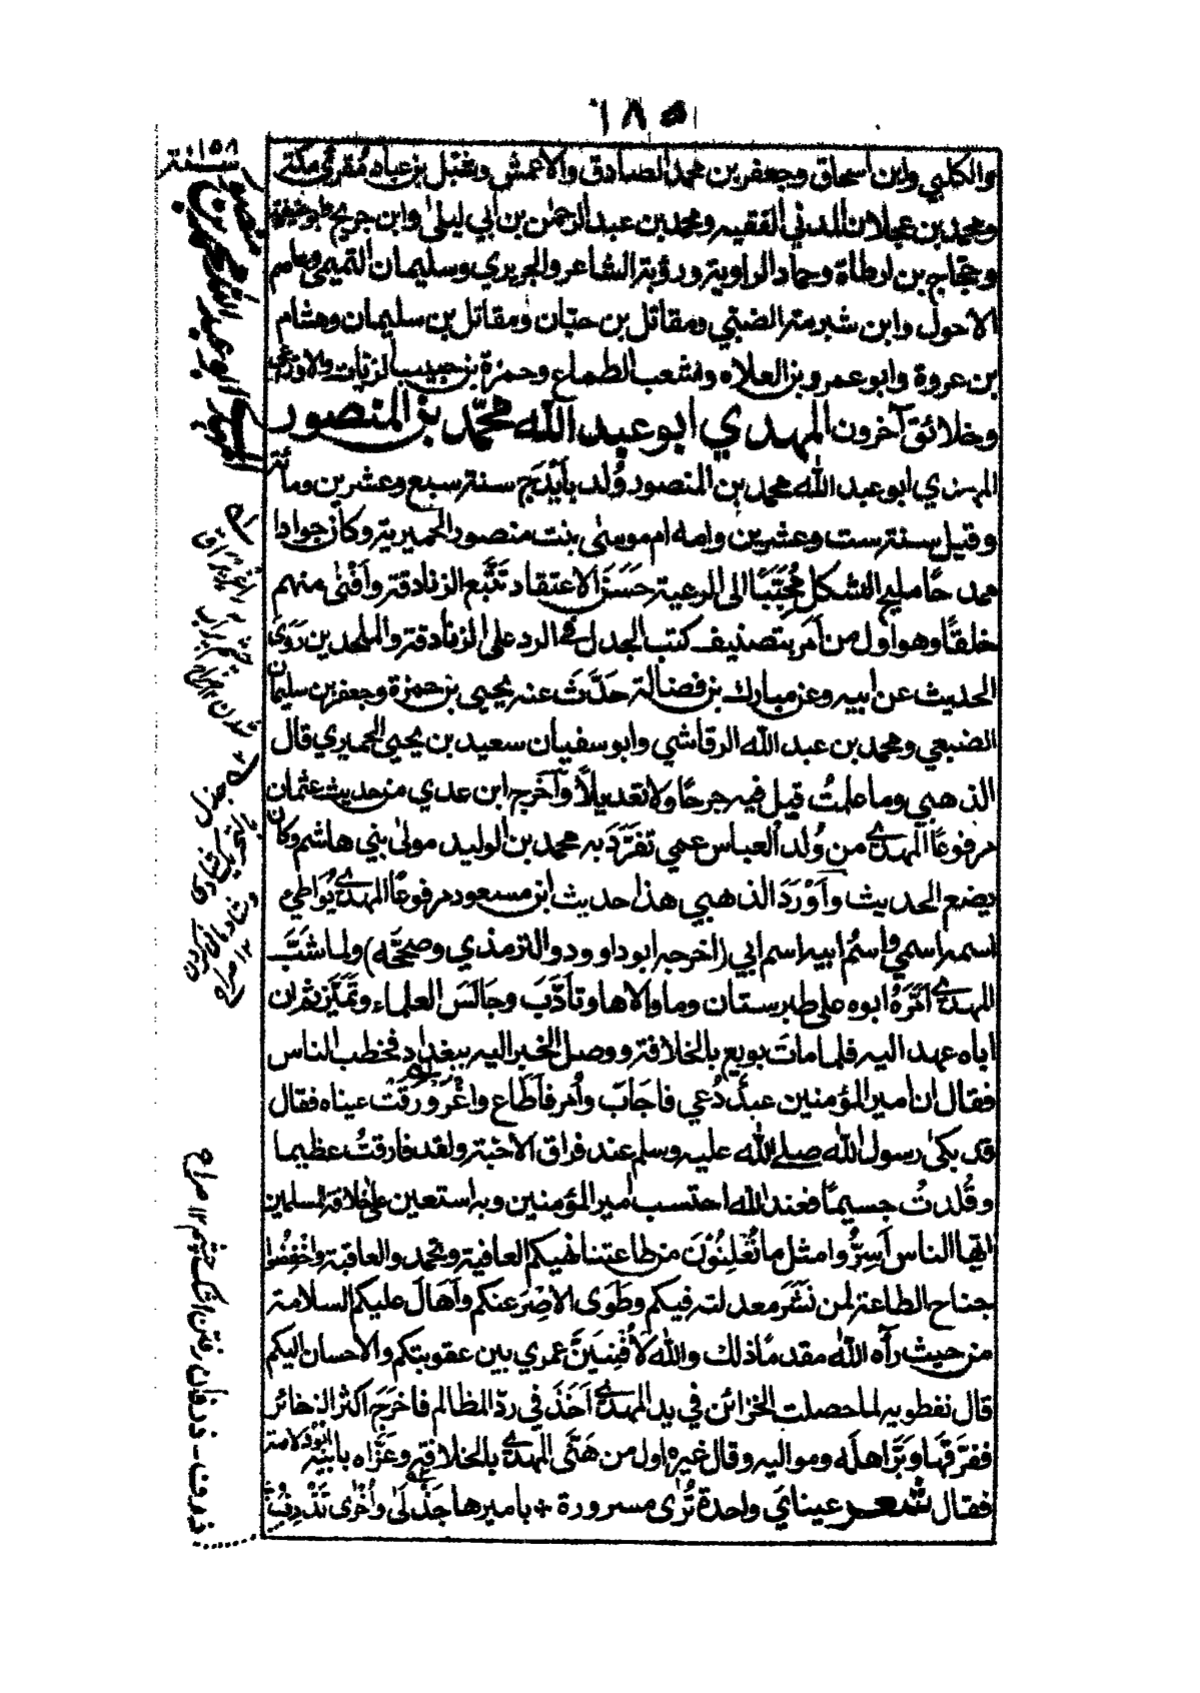 ١٨٥
والكلبي وابن اسحاق وجعفر بن محمد الصادق والاعمش وشبل بن عباد مقرئ مكة
ومحمد بن عجلان المدني الفقيه ومحمد بن عبد الرحمن بن ابي ليلى وابن جريج وابو حنيفة
وحجاج بن ارطاة وحماد الراوية ورؤبة الشاعر والجريري وسليمان التميمي وعاصم
الاحول وابن شبرمة الضبي ومقاتل بن حبان ومقاتل بن سليمان وهشام
بن عروة وابو عمرو بن العلاء واشعب الطماع وحمزة بن حبيب الزيات والاوزاعي
وخلائق آخرون المهدي ابو عبد الله محمّد بن المنصور
المهدي ابو عبد الله محمد بن المنصور وُلد بأَيْذَج سنة سبع وعشرين ومائة
وقيل سنة ست وعشرين وامه ام موسى بنت منصور الحميرية وكان جوادا
ممدحًا مليح الشكل مُحَبَّبًا الى الرعية حَسَنَ الاعتقاد تَتَبَّع الزنادقة وأَفْنى منهم
خلقًا وهو اول من اَمر بتصنيف كتب الجدل في الرد على الزنادقة والملحدين رَوَى
الحديث عن ابيه وعن مبارك بن فضالة حَدَّثَ عنه يحيى بن حمزة وجعفر بن سليمان
الضبعي ومحمد بن عبد الله الرقاشي وابو سفيان سعيد بن يحيى الحميري قال
الذهبي وما علمتُ قيل فيه جرحًا ولا تعديلاً وآخرج ابن عدي من حديث عثمان
مرفوعًا المهدي من وُلد العباس عمي تفَرَّدَ به محمد بن الوليد مولى بني هاشم وكان
يضع الحديث وأَوْرَدَ الذهبي هذا حديث ابن مسعود مرفوعًا المهدي يُواطئ
اسمه اسمي واسْمُ ابيه اسم ابي (اخرجه ابو داوود والترمذي وصححَّه) ولما شَبَّ
المهدي اَمَّرَهُ ابوه على طبرستان وما والاها وتأَدَّبَ وجَالَسَ العلماء وتَمَيَّزَ ثم ان
اباه عهد اليه فلما ماتَ بويع بالخلافة ووصل الخبر اليه ببغداد فخطب الناس
فقال ان امير المؤمنين عبدٌ دُعي فاَجَابَ واُمر فأَطَاع واغْرَوْرَقَتْ عيناه فقال
قد بكى رسول الله صلى الله عليه وسلم عند فراق الاحبة ولقد فارقتُ عظيما
وقُلدتُ جسيمًا فعند الله احتسب امير المؤمنين وبه استعين على خلافة المسلمين
ايها الناس اَسِرُّوا مثل ما تُعْلِنُوْنَ من طاعتنا نهيكم العافية وتحمدوا العاقبة واخْفِضُوا
جناح الطاعة لمن نَشَرَ معدلته فيكم وطَوَى الاِصْرَ عنكم وأَهَالَ عليكم السلامة
من حيث رآه الله مقدمًا ذلك والله لاُفْنِيَنَّ عمري بين عقوبتكم والاحسان اليكم
قال نفطويه لما حصلت الخزائن في يد المهدي أَخَذَ في ردّ المظالم فاَخرَجَ اكثر الذخائر
ففرّقها وبَرَّ اهلَه ومواليه وقال غيره اول من هَنَّى المهدي بالخلافة وعَزَّاه بابيه ابُودُلامة
فقال شعر عيناي واحدة تُرٰى مسرورة * باميرها جَذْلَىٰ واُخْرٰى تَذْرِفُ
١٥٨
سنة